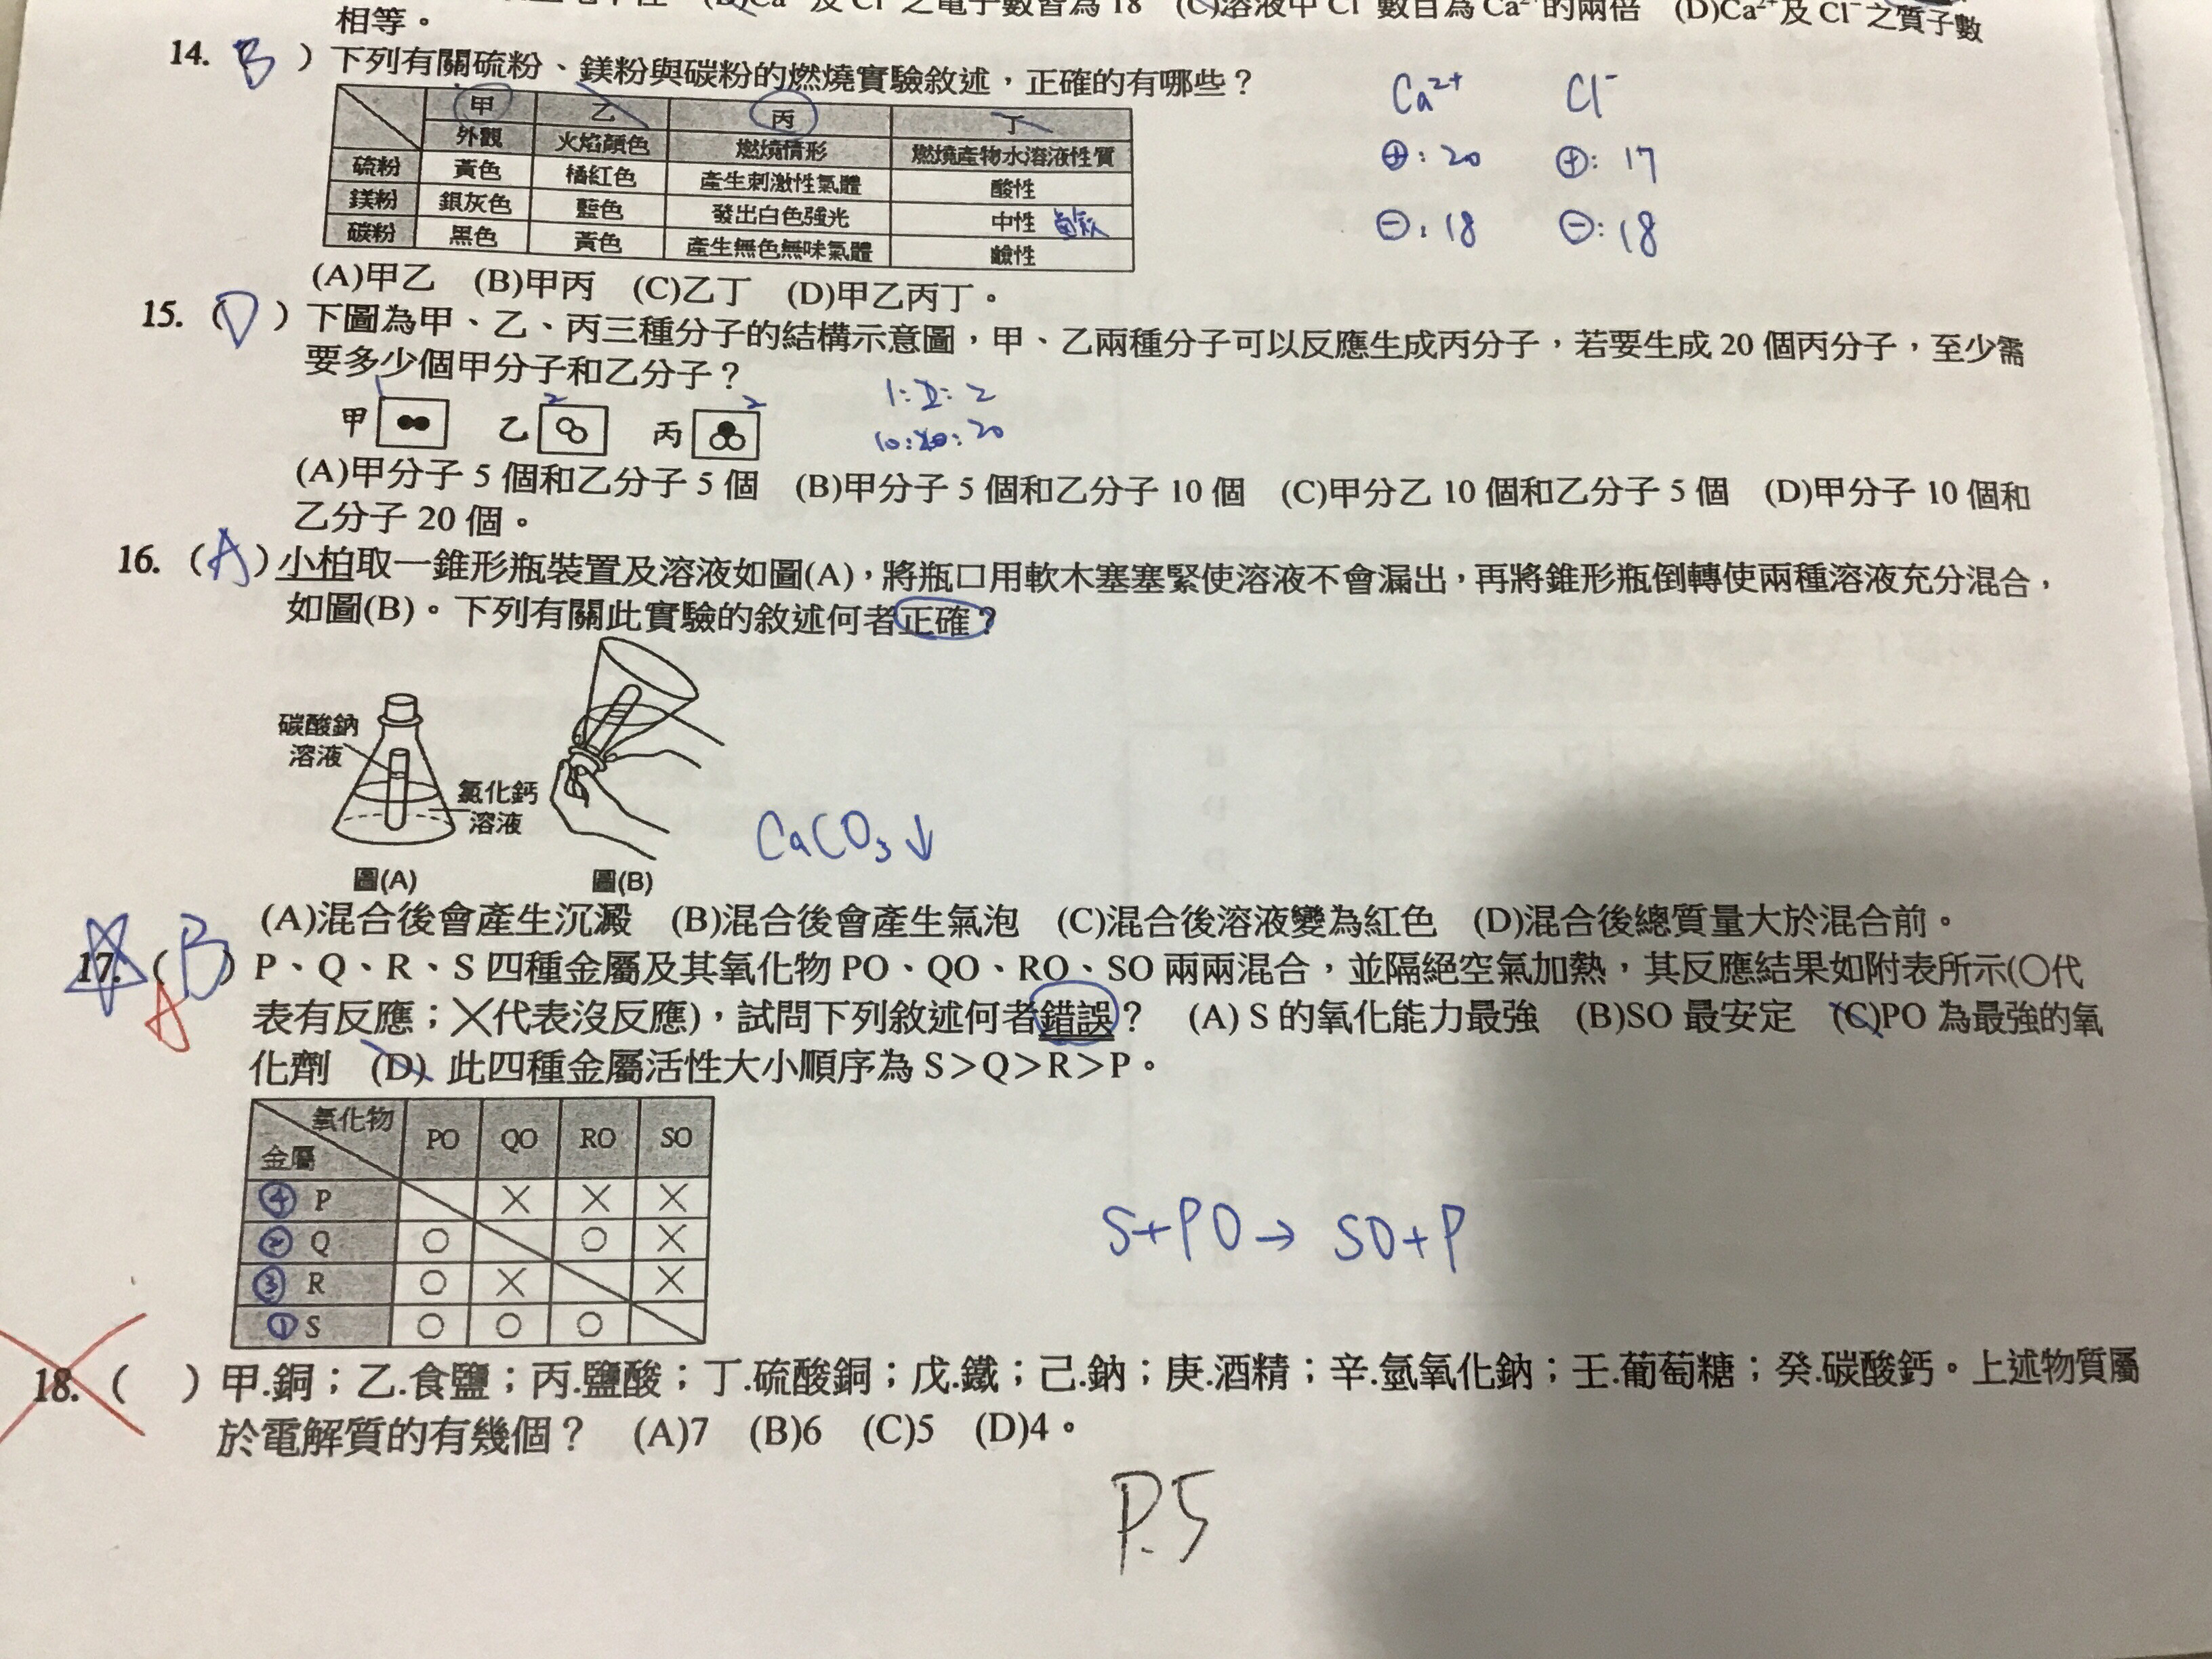 及 Cl⁻ 之電子數皆為 18 (C)溶液中 Cl⁻ 數目為 Ca²⁺的兩倍 (D)Ca²⁺及 Cl⁻之質子數
相等。
14. B ) 下列有關硫粉、鎂粉與碳粉的燃燒實驗敘述，正確的有哪些？
甲 乙 丙 丁
外觀 火焰顏色 燃燒情形 燃燒產物水溶液性質
硫粉 黃色 橘紅色 產生刺激性氣體 酸性
鎂粉 銀灰色 藍色 發出白色強光 中性
碳粉 黑色 黃色 產生無色無味氣體 鹼性
Ca²⁺ Cl⁻
⊕: 20 ⊕: 17
⊖: 18 ⊖: 18
(A)甲乙 (B)甲丙 (C)乙丁 (D)甲乙丙丁。
15. (D) 下圖為甲、乙、丙三種分子的結構示意圖，甲、乙兩種分子可以反應生成丙分子，若要生成 20 個丙分子，至少需
要多少個甲分子和乙分子？
1 2 2
甲 乙 丙
1:2:2
10:20:20
(A)甲分子 5 個和乙分子 5 個 (B)甲分子 5 個和乙分子 10 個 (C)甲分乙 10 個和乙分子 5 個 (D)甲分子 10 個和
乙分子 20 個。
16. (A) 小柏取一錐形瓶裝置及溶液如圖(A)，將瓶口用軟木塞塞緊使溶液不會漏出，再將錐形瓶倒轉使兩種溶液充分混合，
如圖(B)。下列有關此實驗的敘述何者正確？
碳酸鈉
溶液
氯化鈣
溶液
圖(A) 圖(B)
CaCO₃↓
(A)混合後會產生沉澱 (B)混合後會產生氣泡 (C)混合後溶液變為紅色 (D)混合後總質量大於混合前。
17. (B) P、Q、R、S 四種金屬及其氧化物 PO、QO、RO、SO 兩兩混合，並隔絕空氣加熱，其反應結果如附表所示(○代
A
表有反應；╳代表沒反應)，試問下列敘述何者錯誤？ (A) S 的氧化能力最強 (B)SO 最安定 (C)PO 為最強的氧
化劑 (D) 此四種金屬活性大小順序為 S＞Q＞R＞P。
氧化物 PO QO RO SO
金屬
④ P ╳ ╳ ╳
② Q ○ ○ ╳
③ R ○ ╳ ╳
① S ○ ○ ○
S+PO→ SO+P
18. ( ) 甲.銅；乙.食鹽；丙.鹽酸；丁.硫酸銅；戊.鐵；己.鈉；庚.酒精；辛.氫氧化鈉；壬.葡萄糖；癸.碳酸鈣。上述物質屬
於電解質的有幾個？ (A)7 (B)6 (C)5 (D)4。
P.5